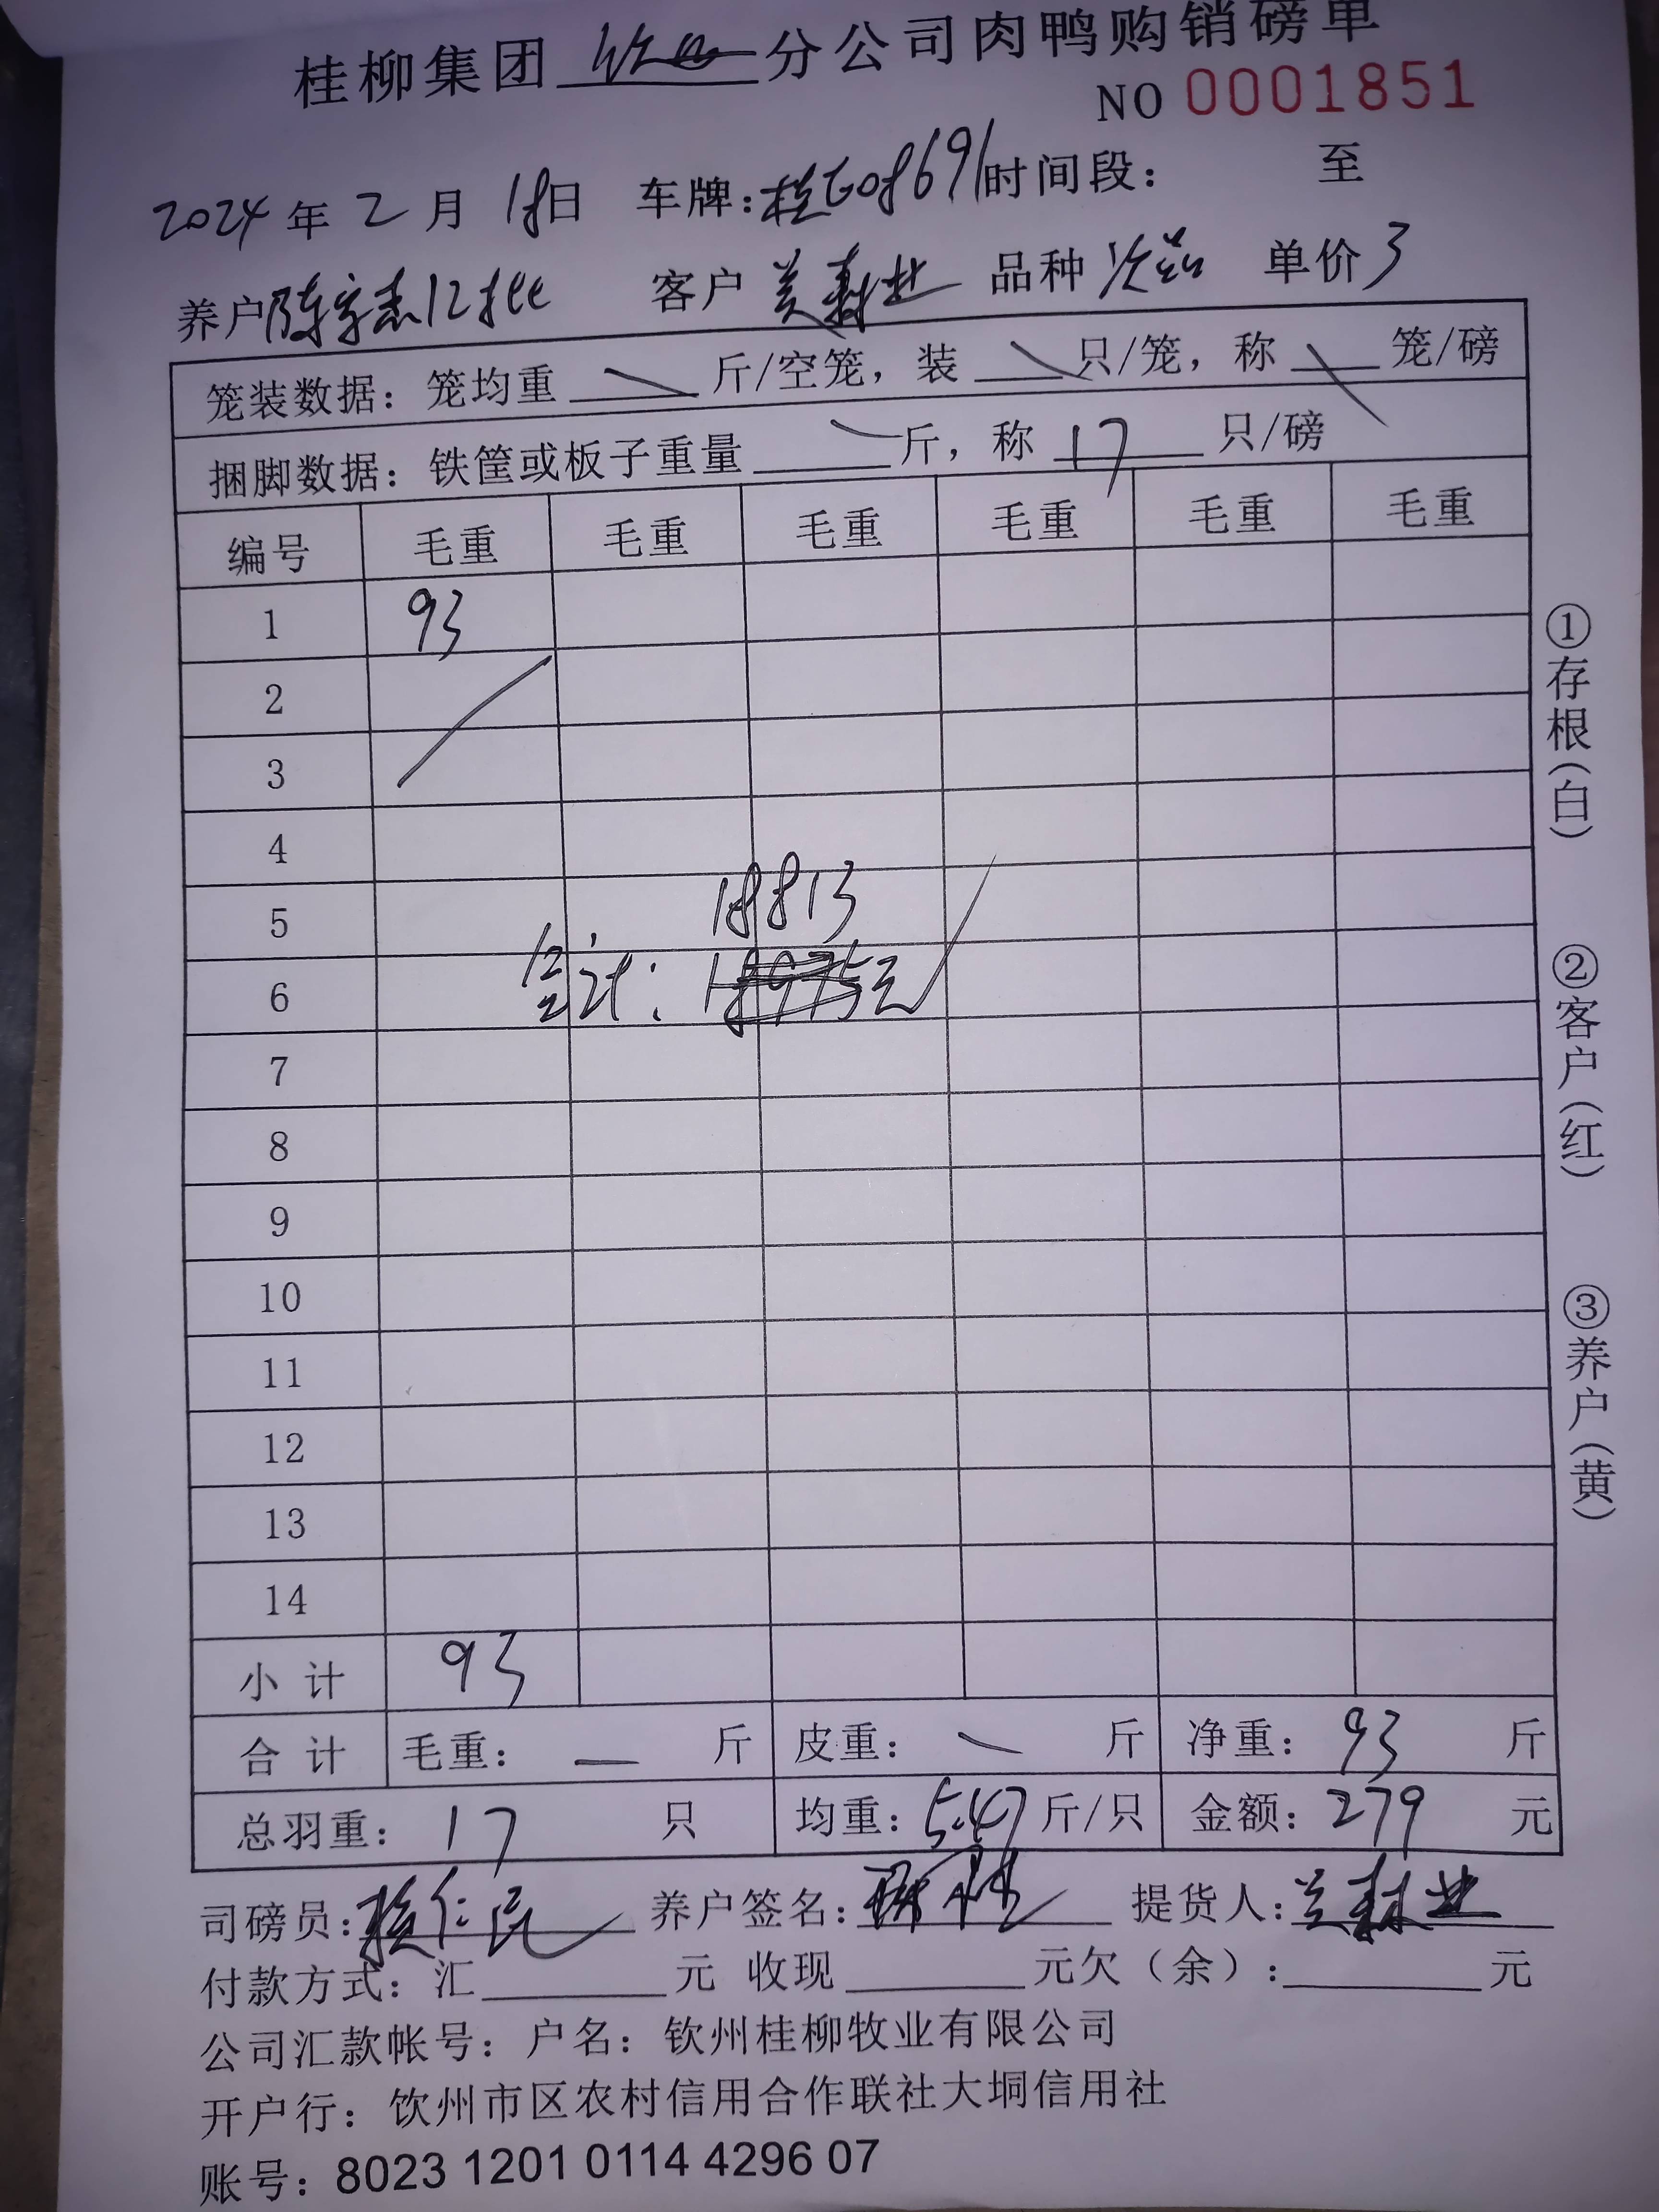 桂柳集团 钦州 分公司肉鸭购销磅单
NO 0001851
2024 年 2 月 18日 车牌: 时间段: 至
养户 12批 客户 品种 次品 单价 3
笼装数据: 笼均重 斤/空笼, 装 只/笼, 称 笼/磅
捆脚数据: 铁筐或板子重量 斤, 称 17 只/磅
编号 毛重 毛重 毛重 毛重 毛重 毛重
1 93
2
3
4
5 18813
6 合计: 元
7
8
9
10
11
12
13
14
小 计 93
合 计 毛重: — 斤 皮重: — 斤 净重: 93 斤
总羽重: 17 只 均重: 5.47 斤/只 金额: 279 元
司磅员: 养户签名: 提货人:
付款方式: 汇 元 收现 元欠（余）: 元
公司汇款帐号: 户名: 钦州桂柳牧业有限公司
开户行: 钦州市区农村信用合作联社大垌信用社
账号: 8023 1201 0114 4296 07
①存根（白）
②客户（红）
③养户（黄）